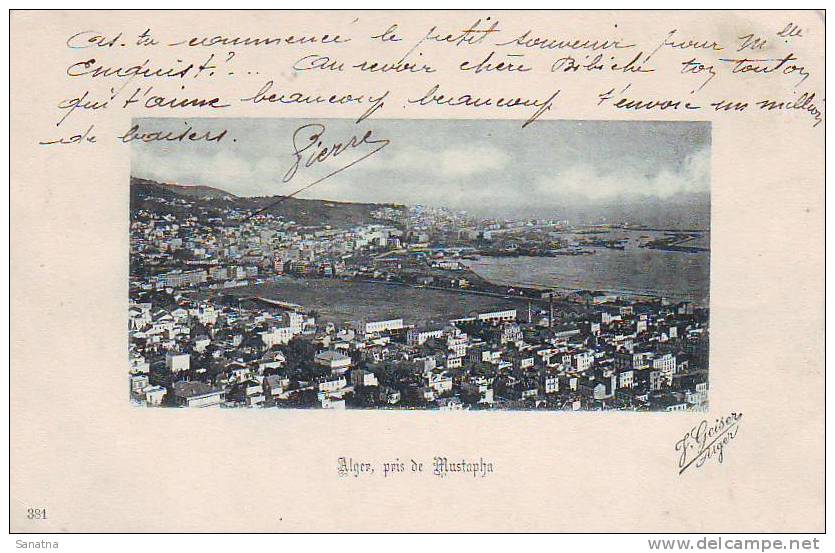 As-tu commencé le petit souvenir pour Mlle
Enquist? ... Au revoir chère Bibiche ton tonton
qui t'aime beaucoup beaucoup t'envoie un million
de baisers.
Pierre
J. Geiser
Alger
Alger, pris de Mustapha
381
Sanatna
http://www.delcampe.net